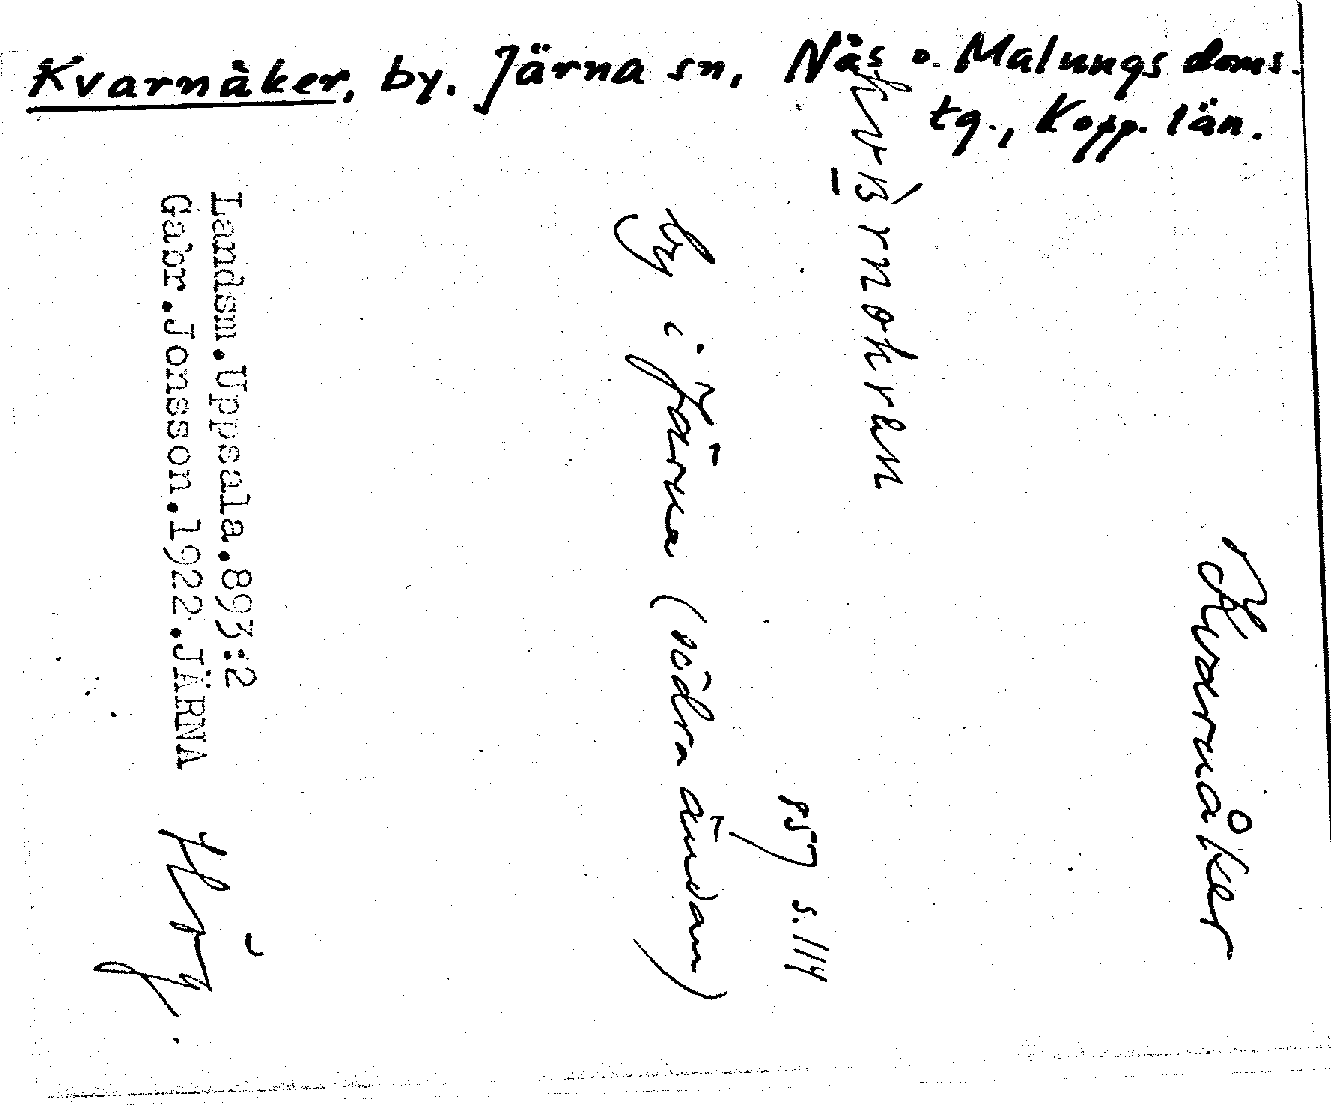 Kvarnåker, by. Järna sn, Nås o. Malungs doms.
tg., Kopp. län.
Kvarnåker
857 s.114
By i Järna (södra ändan)
Landsm.Uppsala.893:2
Gabr.Jonsson.1922.JÄRNA